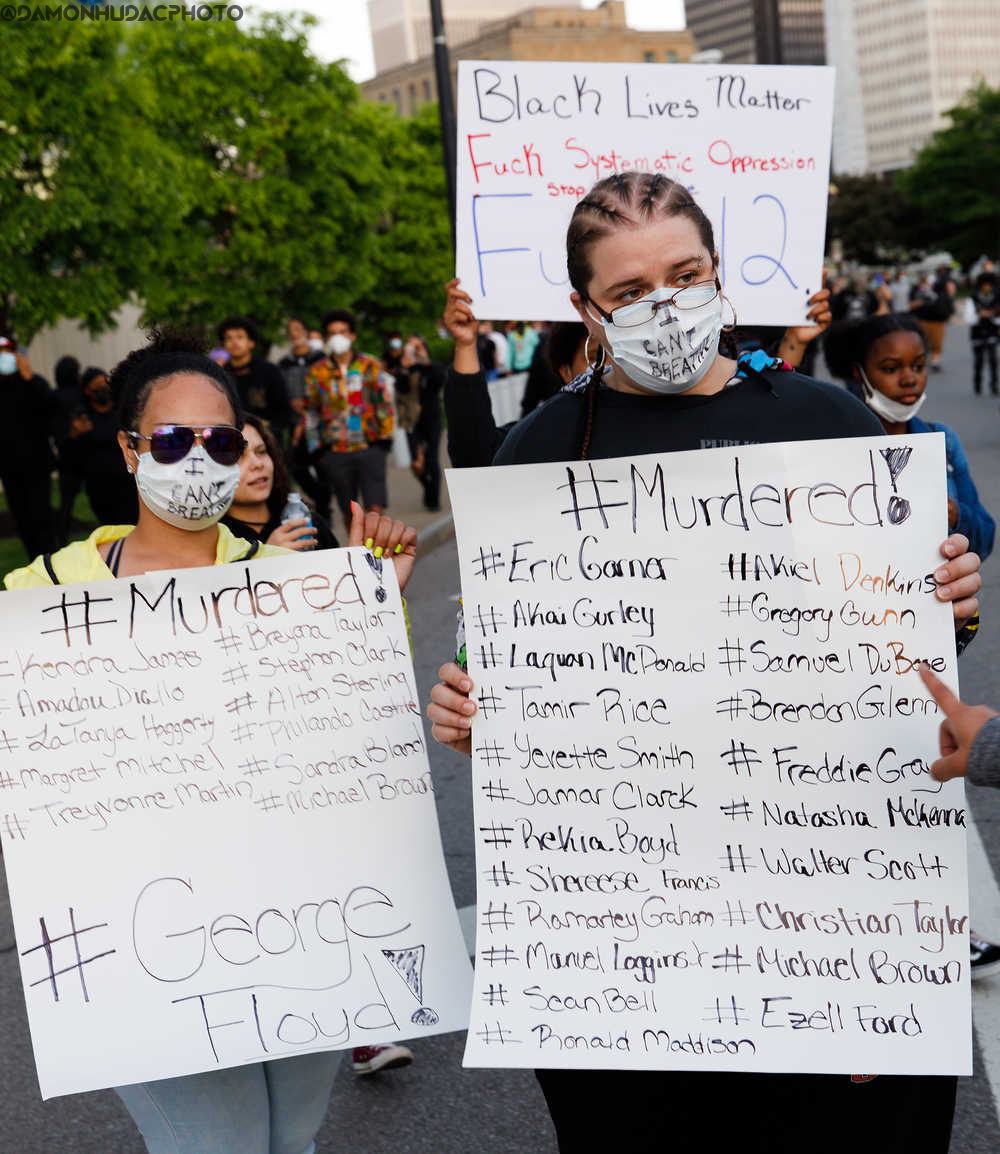 @DAMONHUDACPHOTO
Black Lives Matter
Fuck Systematic Oppression
Stop
Fu 12.
I
CAN'T
BREATHE
I
CAN'T
BREATHE
PUBLIC
#Murdered!
#Kendra James
#Amadou Diallo
#LaTanya Haggerty
#Margret Mitchel
#Treyvonne Martin
#Breyona Taylor
#Stephon Clark
#Alton Sterling
#Philando Castile
#Sandra Bland
#Michael Brown
#George
Floyd!
#Murdered!
#Eric Garner
#Akai Gurley
#Laquan McDonald
#Tamir Rice
#Yevette Smith
#Jamar Clarck
#Rekia Boyd
#Shereese Francis
#Ramarley Graham
#Manuel Loggins Jr
#Sean Bell
#Ronald Maddison
#Akiel Denkins
#Gregory Gunn
#Samuel DuBose
#Brendon Glenn
#Freddie Gray
#Natasha McKenna
#Walter Scott
#Christian Taylor
#Michael Brown
#Ezell Ford